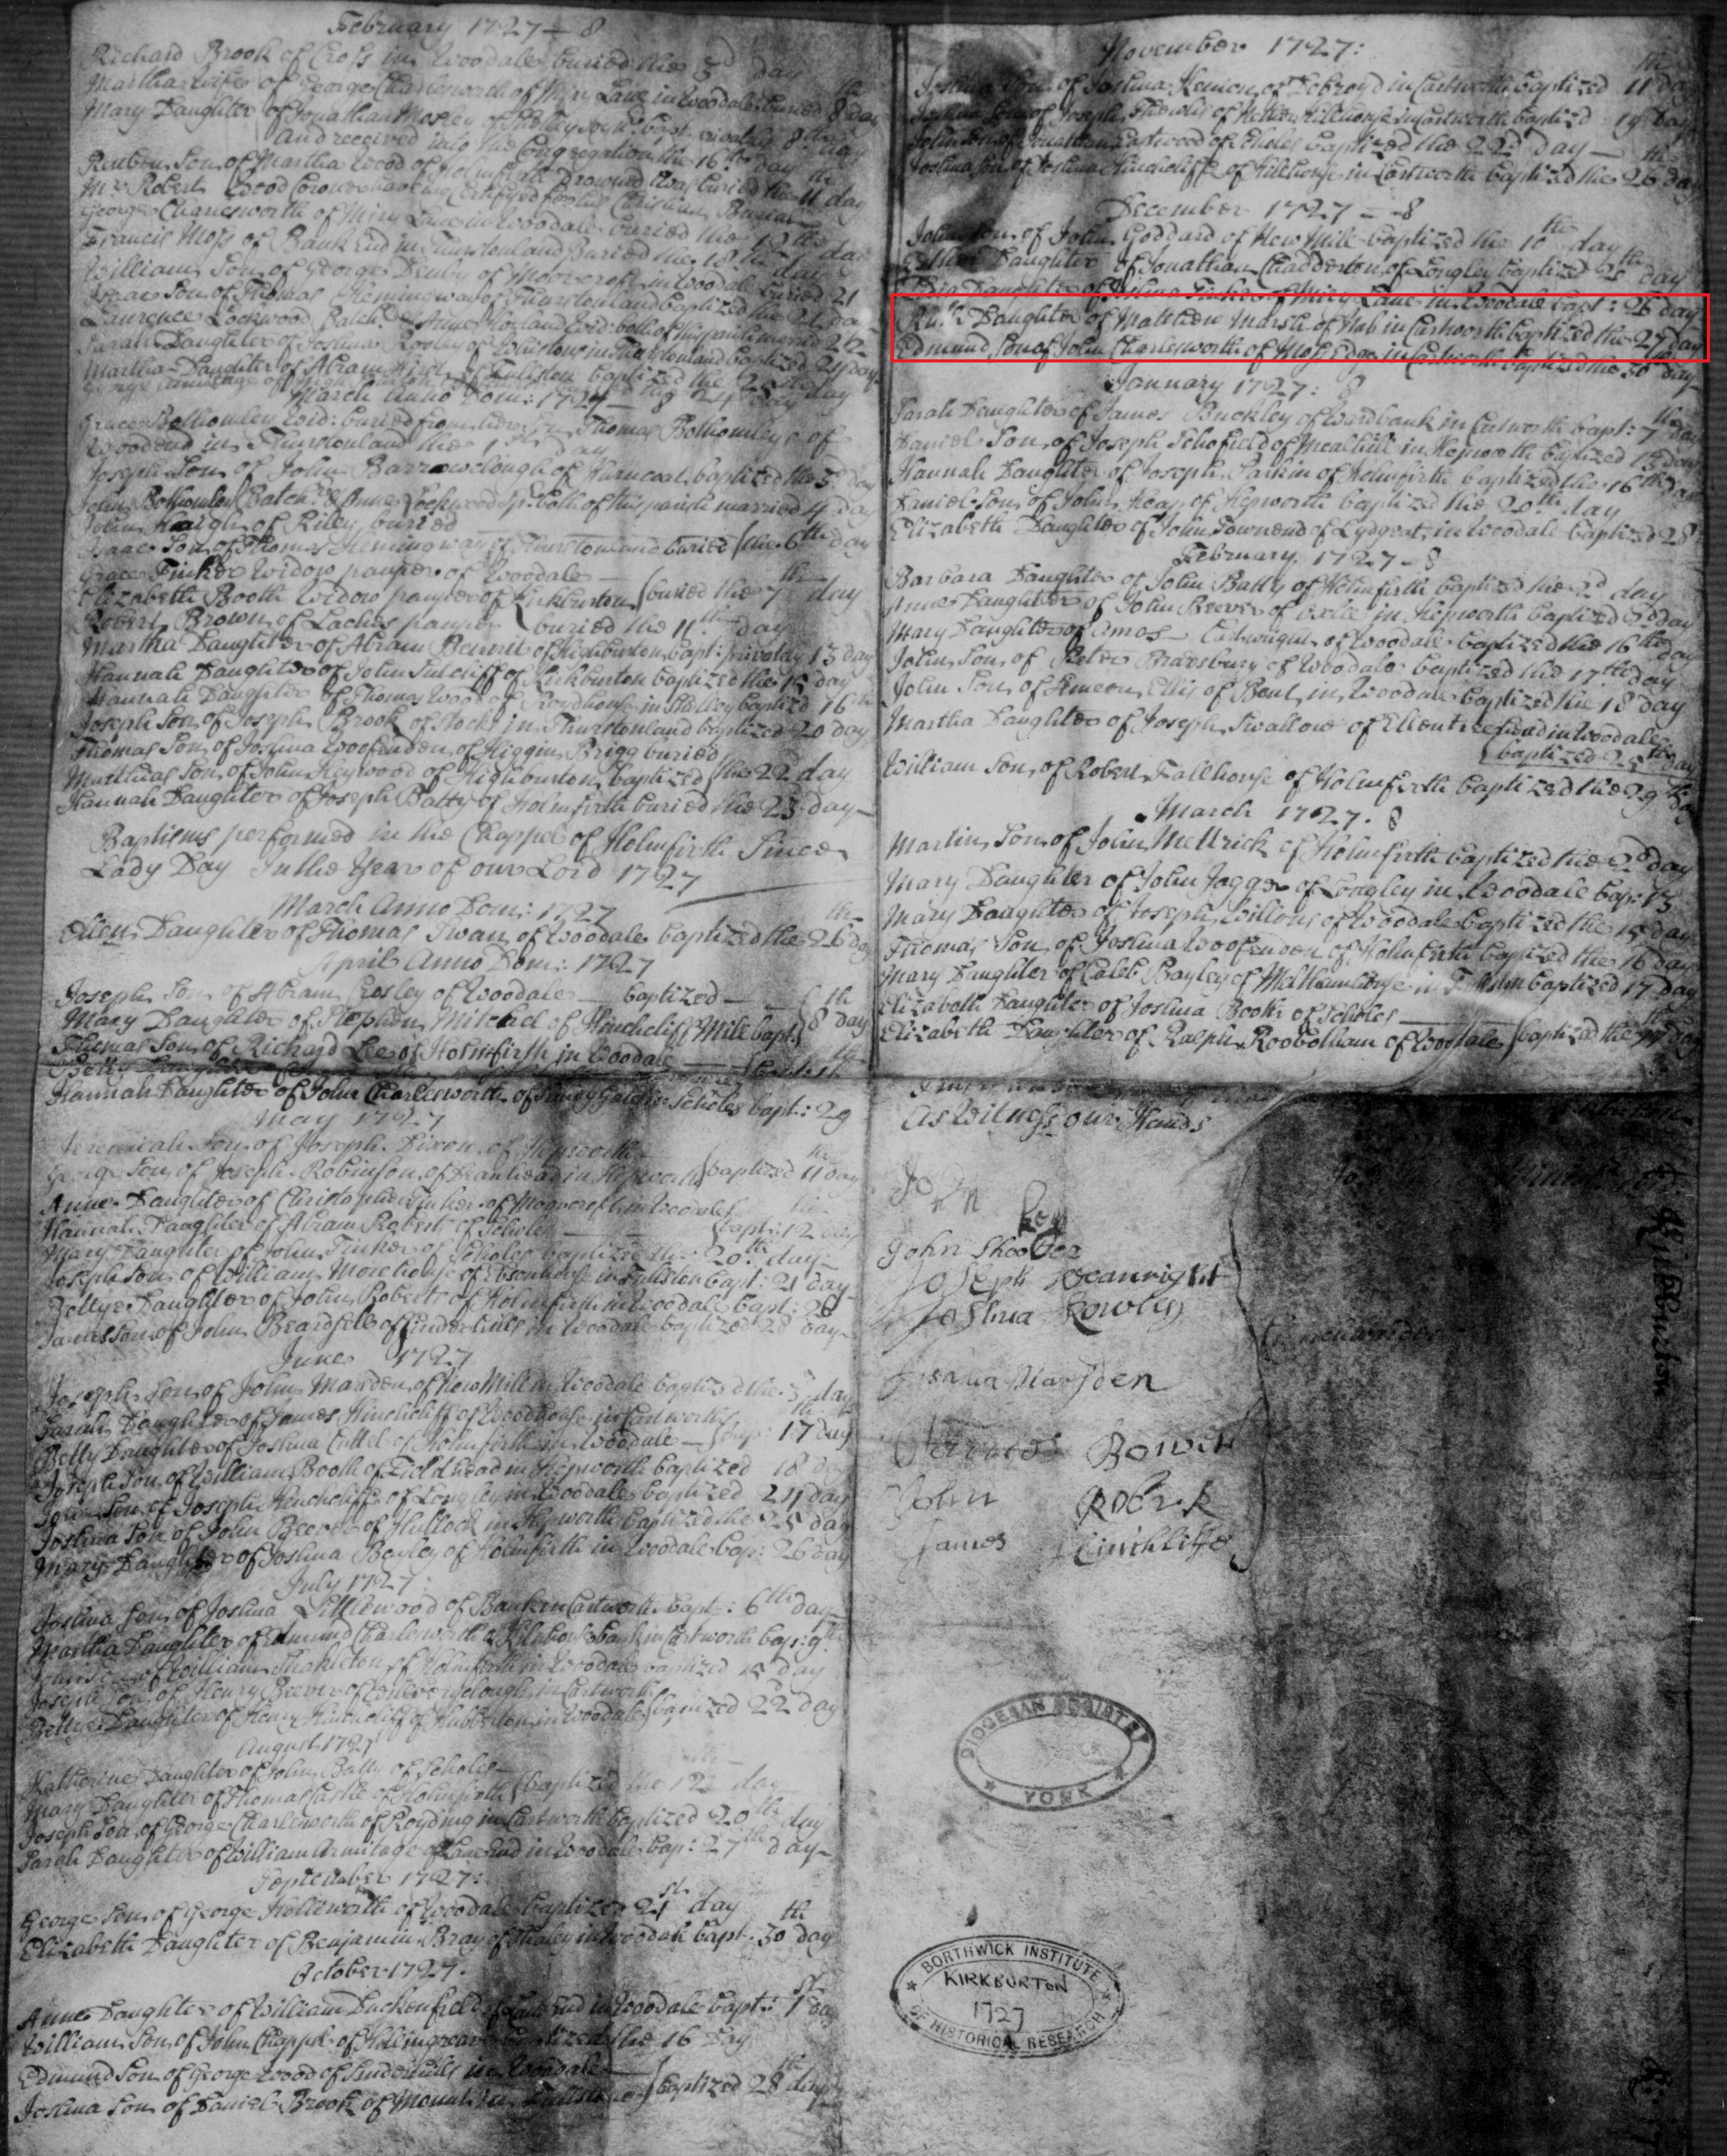 February 1727 — 8
Richard Brook of Cross in Woodale buried the 5d day
Martha wife of George Charlesworth of Miry Lane in Woodale buried 8 day
Mary Daughter of Jonathan Mosley of Shelley bapt: privately 8th day
and received into the Congregation the 16th day
Reuben Son of Martha Wood of Holmfirth Drowned was buried the 11 day
Mr Robert Wood Coroner having Certifyed for his Christian Burial
George Charlesworth of Miry Lane in Woodale buried the 12th day
Francis Moss of Bank End in Thurstonland Buried the 18th day
William Son of George Denby of Moorcroft in Woodale buried 21
Isaac Son of Thomas Hemingway of Thurstonland baptized the 21 day
Laurence Lockwood Batch: & Anne Hoyland Wid: both of this parish married 22
Sarah Daughter of Joshua Rooley of in Thurstonland baptized 24 day
Martha Daughter of Abram Hirst of Fulston baptized the 25 day
George Armitage of 24 day
March Anno Dom: 1727 — 8
Grace Bothomley Wid: buried from her Son Thomas Bothomley's of
Woodend in Thurstonland the 1st day
Joseph Son of John Barrowclough of Thuncoat baptized the 3d day
John Bothomley Batch: & Anne Lockwood Sp: both of this parish married 4 day
John Haigh of Riley buried
Isaac Son of Thomas Hemingway of Thurstonland buried the 6th day
Grace Tinker Widow pauper of Woodale —
Elizabeth Booth Widow pauper of Kirkburton buried the 7th day
Robert Brown of Laches pauper buried the 11th day
Martha Daughter of Abram Burnit of Highburton bapt: privately 13 day
Hannah Daughter of John Sutcliff of Kirkburton baptized the 15 day
Hannah Daughter of Thomas Wood of Roydhouse in Shelley baptized 16th
Joseph Son of Joseph Brook of Rocks in Thurstonland baptized 20 day
Thomas Son of Joshua Woofenden of Higgin Brigg buried
Matthias Son of John Heywood of Highburton baptized the 22d day
Hannah Daughter of Joseph Batty of Holmfirth buried the 23 day
Baptisms performed in the Chappel of Holmfirth Since
Lady Day In the Year of our Lord 1727
March Anno Dom: 1727
Ellen Daughter of Thomas Swan of Woodale baptized the 26th day
April Anno Dom: 1727
Joseph Son of Abram Crosley of Woodale — baptized —
Mary Daughter of Stephen Mitchel of Hinchcliff Mill bapt: 8th day
Thomas Son of Richard Lee of Holmfirth in Woodale
Betty Daughter
Hannah Daughter of John Charlesworth of in Scholes bapt: 29
May 1727
Jeremiah Son of Joseph Dixon of Hepworth
George Son of Joseph Robinson of Deanhead in Hepworth baptized 11th day
Anne Daughter of Christopher Tinker of Moorcroft in Woodale
Hannah Daughter of Abram Robert of Scholes bapt: 12 day
Mary Daughter of John Tinker of Scholes baptized the 20th day
Joseph Son of William Morehouse of in Fulston bapt: 21 day
Bettye Daughter of John Roberts of Holmfirth in Woodale bapt: 26
James Son of John Beardsell of Underhills in Woodale baptized 28 day
June 1727
Joseph Son of John Marsden of New Mill in Woodale baptized the 5 day
Sarah Daughter of James Hinchcliff of Woodhouse in Cartworth
Betty Daughter of Joshua Cuttel of Holmfirth in Woodale — bap: 17 day
Joseph Son of William Booth of Fieldhead in Hepworth baptized 18 day
Son of Joseph Hinchcliffe of Longley in Woodale baptized 24 day
Joshua Son of John Beever of Hullock in Hepworth baptized the 25 day
Mary Daughter of Joshua Bayley of Holmfirth in Woodale bap: 26 day
July 1727
Joshua Son of Joshua Littlewood of Bank in Cartworth bapt: 6th day
Martha Daughter of Edmund Charlesworth of in Cartworth bap: 9th
John Son of William Shakleton of Holmfirth in Woodale baptized 15 day
Joseph Son of Henry Beever of in Cartworth
Bettye Daughter of Henry Hinchcliff of Hubberton in Woodale baptized 22d day
August 1727
Katherine Daughter of John Batty of Scholes —
Mary Daughter of Thomas Castle of Holmfirth baptized the 12 day
Joseph Son of George Charlesworth of Royding in Cartworth baptized 20th day
Sarah Daughter of William Armitage of Lane End in Woodale bap: 27th day
September 1727:
George Son of George Hollworth of Woodale baptized 21st day
Elizabeth Daughter of Benjamin Bray of in Woodale bapt: 30th day
October 1727:
Anne Daughter of William Duckenfield of Lane End in Woodale bapt: 1st day
William Son of John Chappel of baptized the 16 Day
Edmund Son of George Wood of Underhills in Woodale —
Joshua Son of Daniel Brook of Mount in Fulstone baptized 28th day
November 1727:
Joshua Son of Joshua Kenion of in Cartworth baptized 11th day
Joshua Son of Joseph of Nether Hillhouse in Cartworth baptized 19 day
John Son of Jonathan Eastwood of Scholes baptized the 22d day —
Joshua Son of Joshua Hinchcliffe of Hillhouse in Cartworth baptized the 26th day
December 1727 — 8
John Son of John Goddard of New Mill baptized the 10th day
Esther Daughter of Jonathan Chadderton of Longley baptized 26th day
Lydia Daughter of Joshua Tinker of Miry Lane in Woodale bapt: 26 day
Ruth Daughter of Matthew Marsh of Nab in Cartworth baptized the 27 day
Edmund Son of John Charlesworth of Moss Edge in Cartworth baptized the 30th day
January 1727: 8
Sarah Daughter of James Buckley of Wardbank in Cartworth bapt: 7th day
Daniel Son of Joseph Schofield of Mealhill in Hepworth baptized 15 day
Hannah Daughter of Joseph Parkin of Holmfirth baptized the 16th day
Daniel Son of John Heap of Hepworth baptized the 20th day
Elizabeth Daughter of John Townend of Lydgeat in Woodale baptized 28
February 1727 - 8
Barbara Daughter of John Batty of Holmfirth baptized the 2d day
Anne Daughter of John Beever of in Hepworth baptized 3d day
Mary Daughter of Amos Cartwright of Woodale baptized the 16th day
John Son of Peter Bradsbury of Woodale baptized the 17th day
John Son of Simeon Ellis of Bent in Woodale baptized the 18 day
Martha Daughter of Joseph Swallow of Ellentreehead in Woodale
baptized 25th day
William Son of Robert Fallhouse of Holmfirth baptized the 29th day
March 1727. 8
Martin Son of John Mettrick of Holmfirth baptized the 2d day
Mary Daughter of John Jagger of Longley in Woodale bap: 13
Mary Daughter of Joseph Willons of Woodale baptized the 15 day
Thomas Son of Joshua Woofenden of Holmfirth baptized the 16 day
Mary Daughter of Caleb Bayley of Melthamhouse in Fulston baptized 17 day
Elizabeth Daughter of Joshua Booth of Scholes —
Elizabeth Daughter of Ralph Roobotham of Woodale baptized the day
As Witness our Hands
John
John Shooter
Joseph Weanright
Joshua Rowley
Joshua Marsden
Bower
John
James Hinchliffe
Churchwardens
DIOCESAN REGISTRY
YORK
BORTHWICK INSTITUTE
KIRKBURTON
1727
OF HISTORICAL RESEARCH